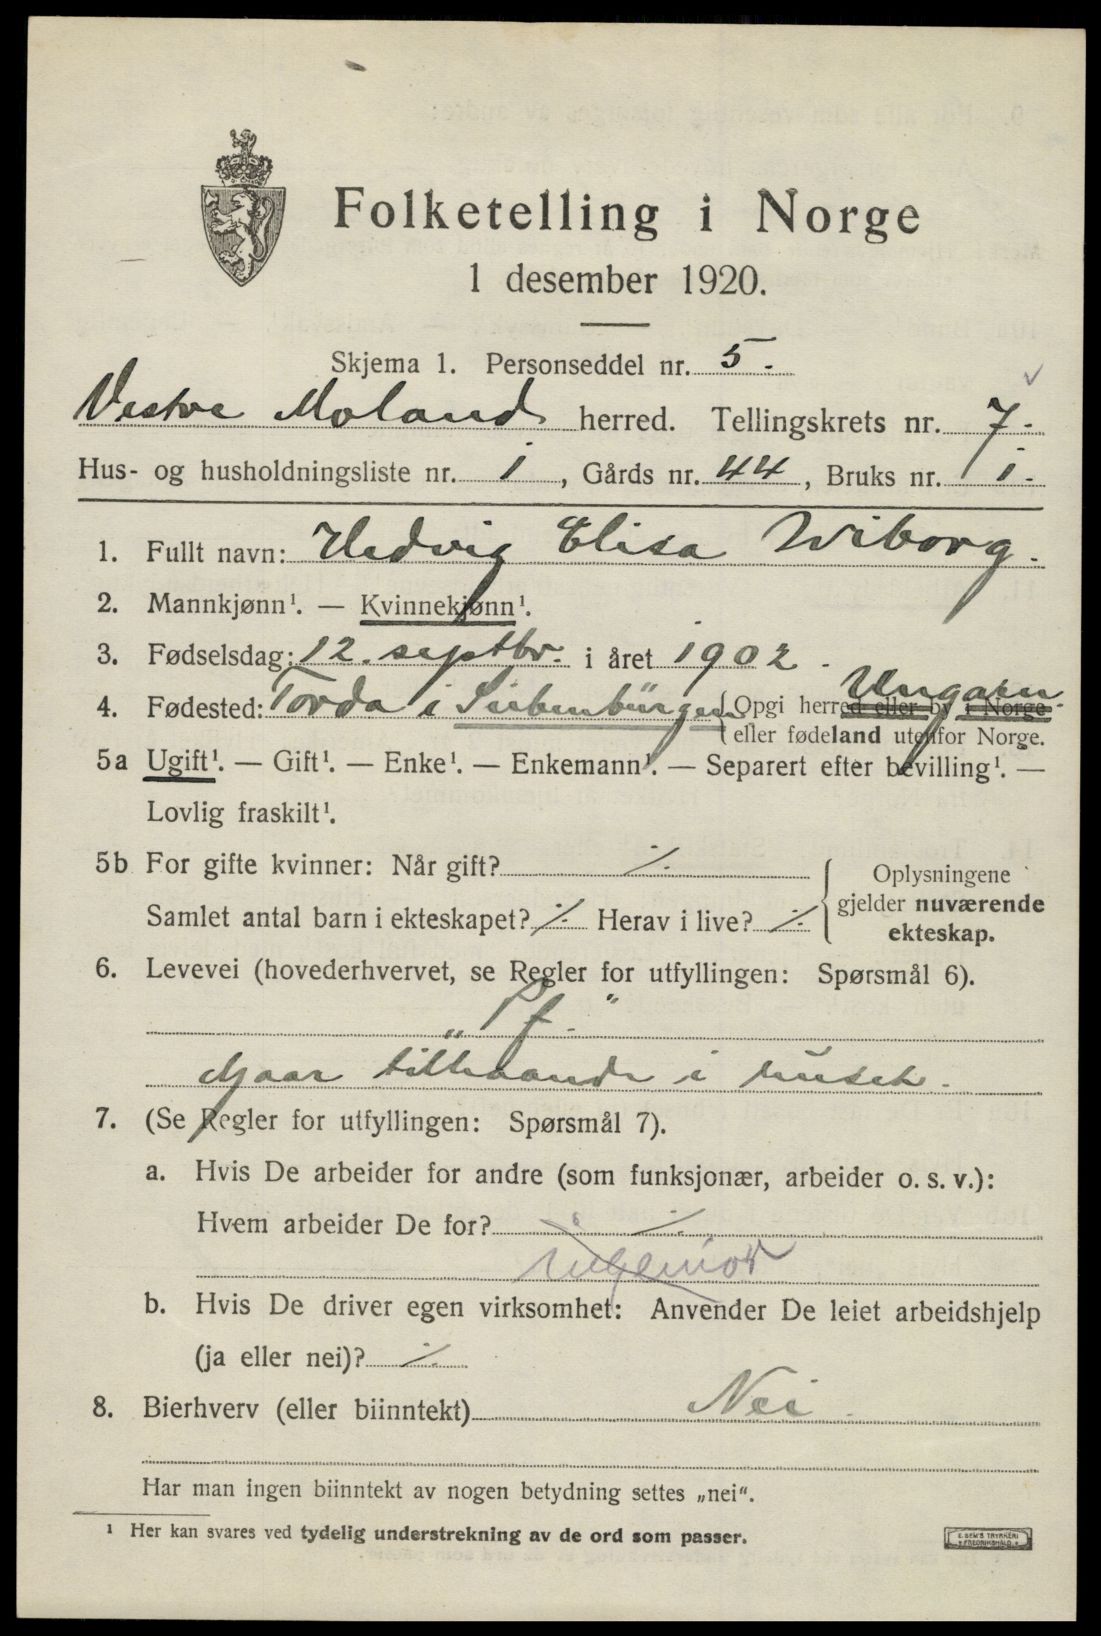 Folketelling i Norge
1 desember 1920.
Skjema 1. Personseddel nr. 5.
Vestre Moland herred. Tellingskrets nr. 7.
Hus- og husholdningsliste nr. 1, Gårds nr. 44, Bruks nr. 1.
1. Fullt navn: Hedvig Elisa Wiborg.
2. Mannkjønn¹. — Kvinnekjønn¹.
3. Fødselsdag: 12. septbr. i året 1902.
Ungarn
4. Fødested: Torda i Siebenbürgen {Opgi herred eller by i Norge
eller fødeland utenfor Norge.
5a Ugift¹. — Gift¹. — Enke¹. — Enkemann¹. — Separert efter bevilling¹. —
Lovlig fraskilt¹.
5b For gifte kvinner: Når gift? ·/·
Samlet antal barn i ekteskapet? ·/· Herav i live? ·/·
Oplysningene
gjelder nuværende
ekteskap.
6. Levevei (hovederhvervet, se Regler for utfyllingen: Spørsmål 6).
„Pf."
Gaar tilhaande i huset.
7. (Se Regler for utfyllingen: Spørsmål 7).
a. Hvis De arbeider for andre (som funksjonær, arbeider o. s. v.):
Hvem arbeider De for? ·/·
ingeniør
b. Hvis De driver egen virksomhet: Anvender De leiet arbeidshjelp
(ja eller nei)? ·/·
8. Bierhverv (eller biinntekt) Nei.
Har man ingen biinntekt av nogen betydning settes „nei".
¹ Her kan svares ved tydelig understrekning av de ord som passer.
E. SEM'S TRYKKERI
FREDRIKSHALD